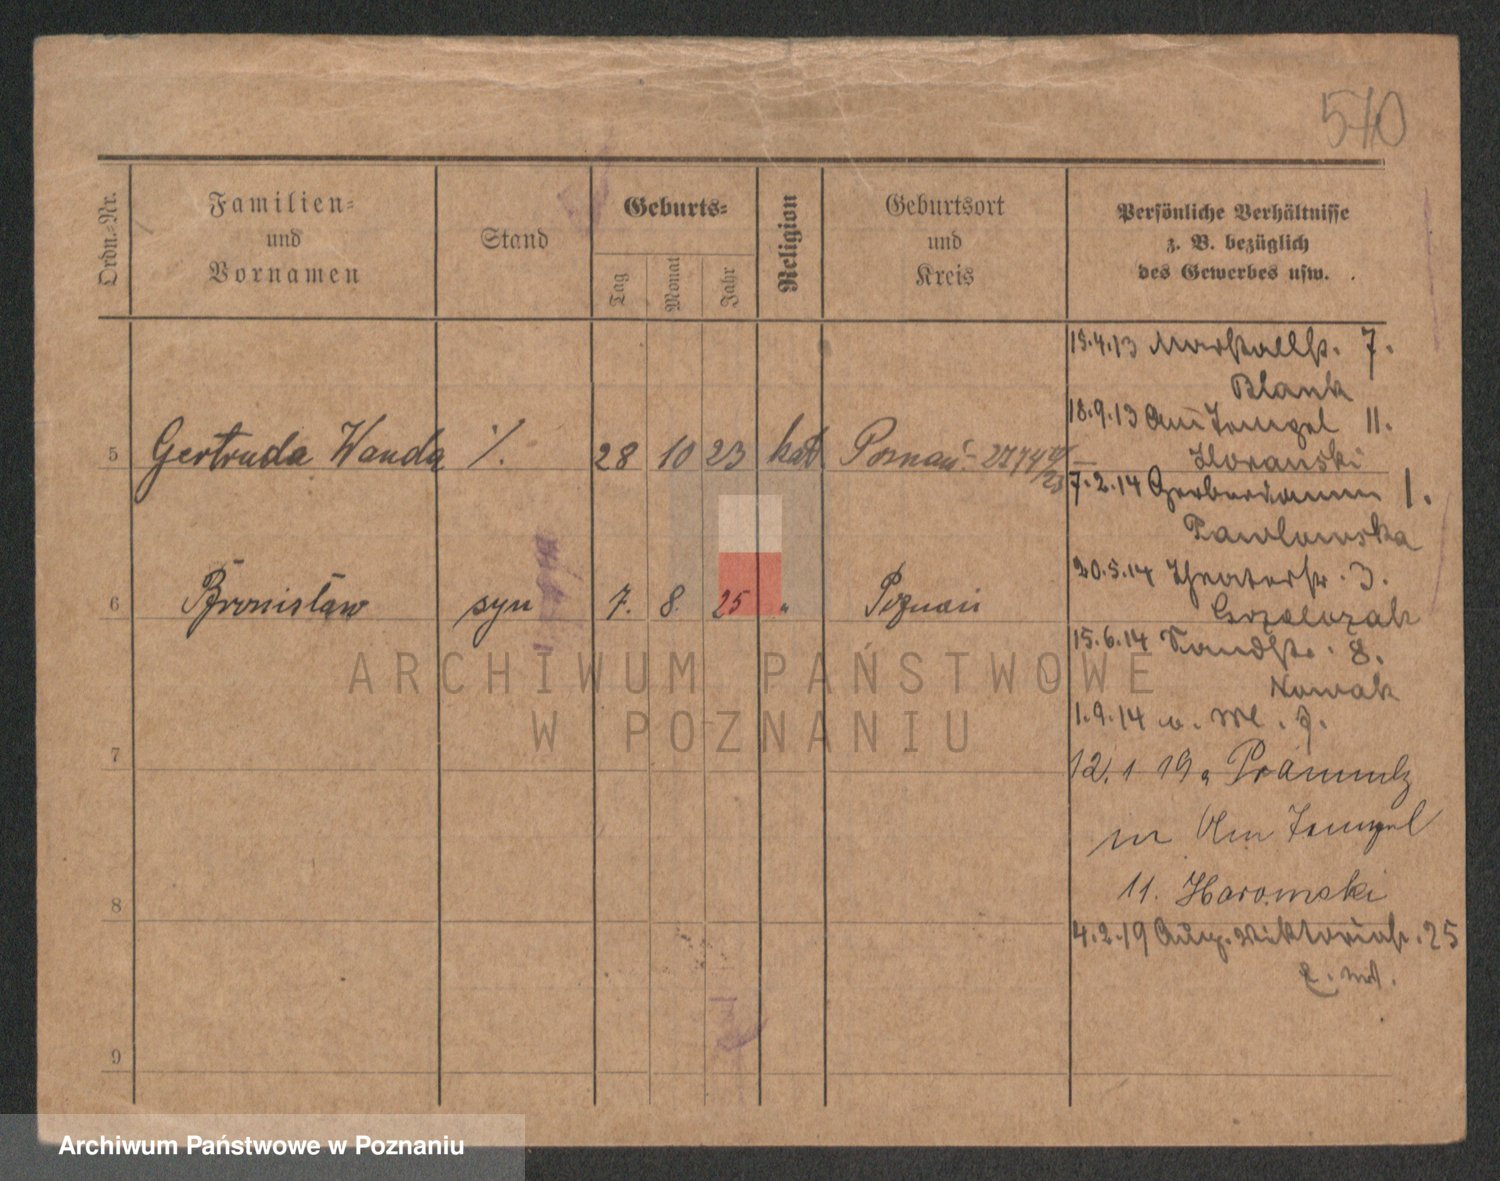 510
Ordn.-Nr.
Familien-
und
Vornamen
Stand
Geburts-
Tag
Monat
Jahr
Religion
Geburtsort
und
Kreis
Persönliche Verhältnisse
z. B. bezüglich
des Gewerbes usw.
15.4.13 Marstallstr. 7.
Blank
18.9.13 Am Tempel 11.
5 Gertruda Wanda ·/. 28 10 23 kat Poznań
7.2.14 Gerberdamm 1.
Pawlowska
20.5.14 Theaterstr. 3.
6 Bronisław syn 7. 8. 25 " Poznań
15.6.14 Sandstr. 8.
Nowak
1.9.14
7
12.1 19
Am Tempel
11.
8
4.2.19 Aug. Viktoriastr. 25
9
ARCHIWUM PAŃSTWOWE
W POZNANIU
Archiwum Państwowe w Poznaniu